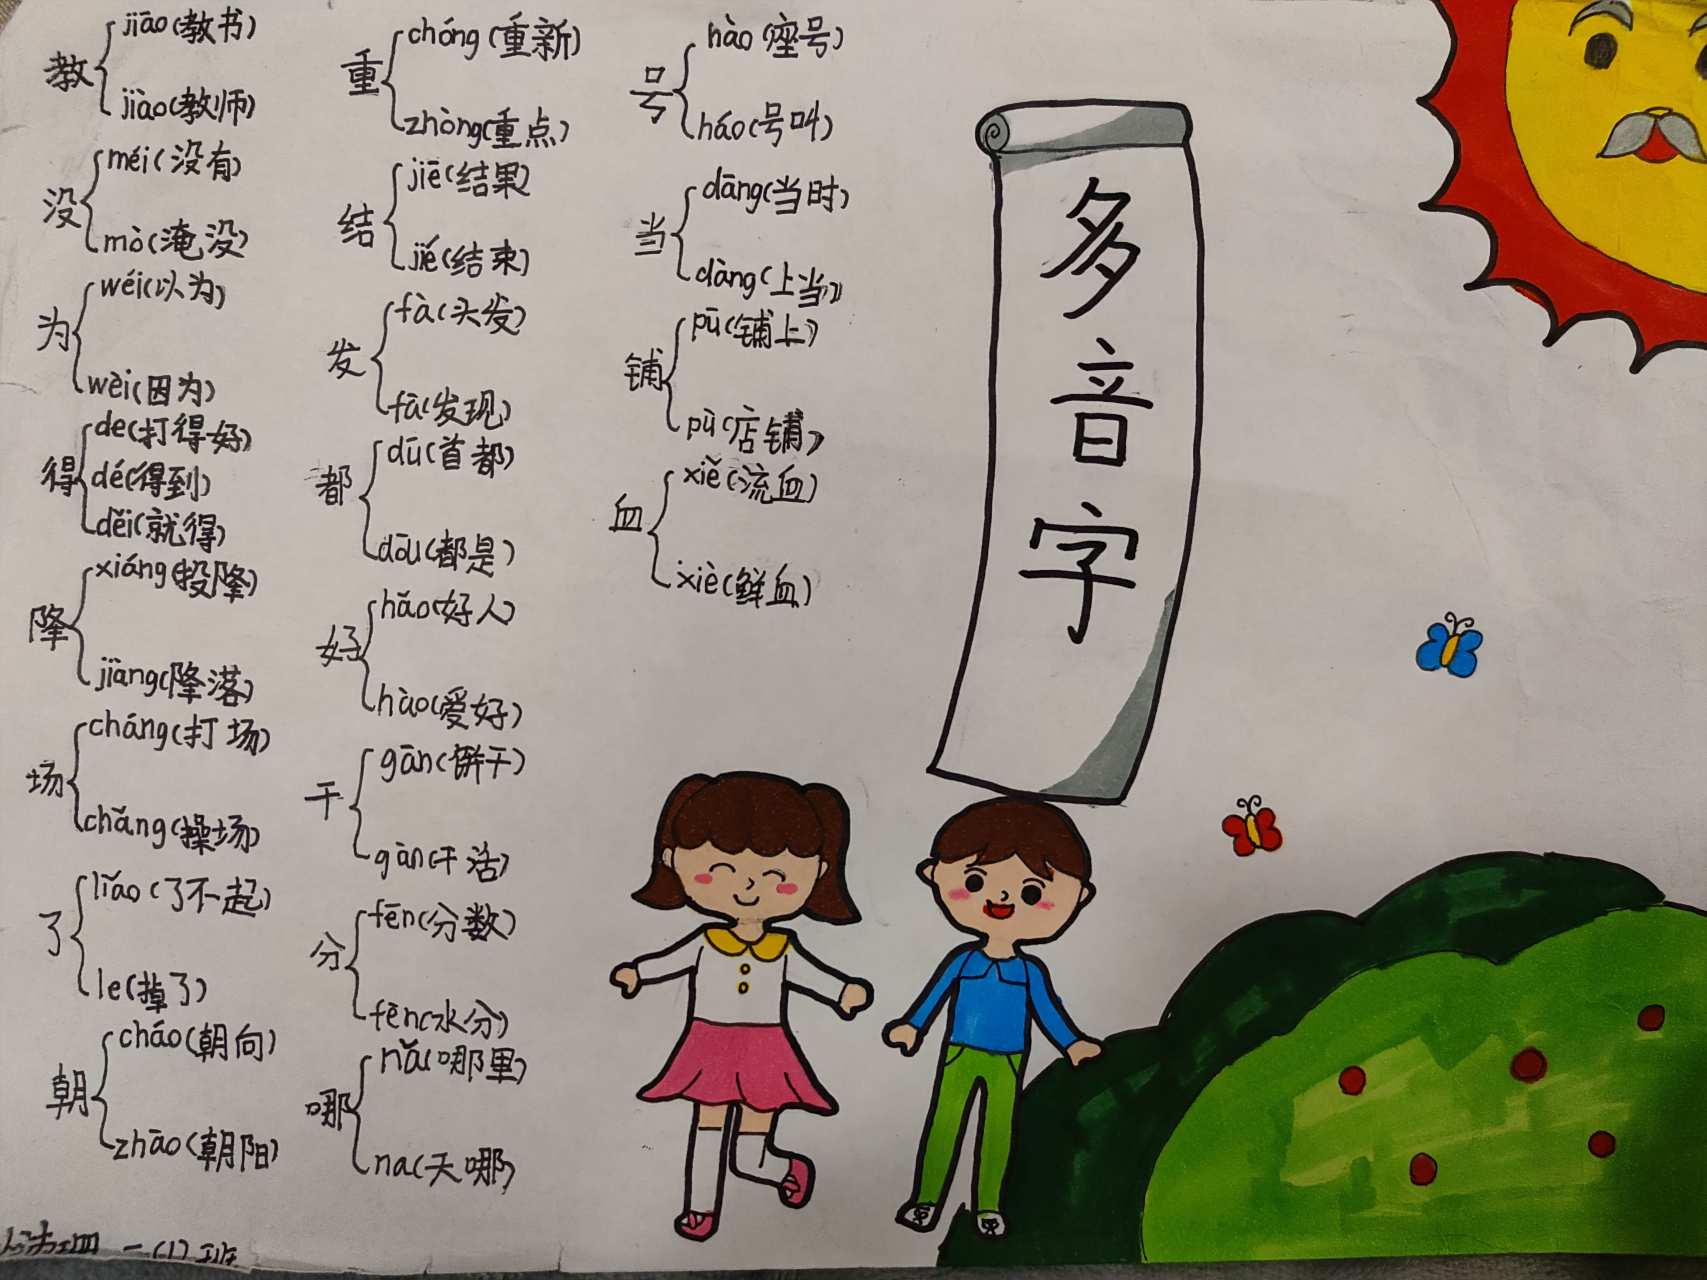 教 jiāo(教书)
jiào(教师)
没 méi(没有)
mò(淹没)
为 wéi(以为)
wèi(因为)
得 de(打得好)
dé(得到)
děi(就得)
降 xiáng(投降)
jiàng(降落)
场 cháng(打场)
chǎng(操场)
了 liǎo(了不起)
le(掉了)
朝 cháo(朝向)
zhāo(朝阳)
一(1)班
重 chóng(重新)
zhòng(重点)
结 jiē(结果)
jié(结束)
发 fà(头发)
fā(发现)
都 dū(首都)
dōu(都是)
好 hǎo(好人)
hào(爱好)
干 gān(饼干)
gàn(干活)
分 fēn(分数)
fēn(水分)
哪 nǎ(哪里)
na(天哪)
号 hào(座号)
háo(号叫)
当 dāng(当时)
dàng(上当)
铺 pū(铺上)
pù(店铺)
血 xiě(流血)
xiè(鲜血)
多音字